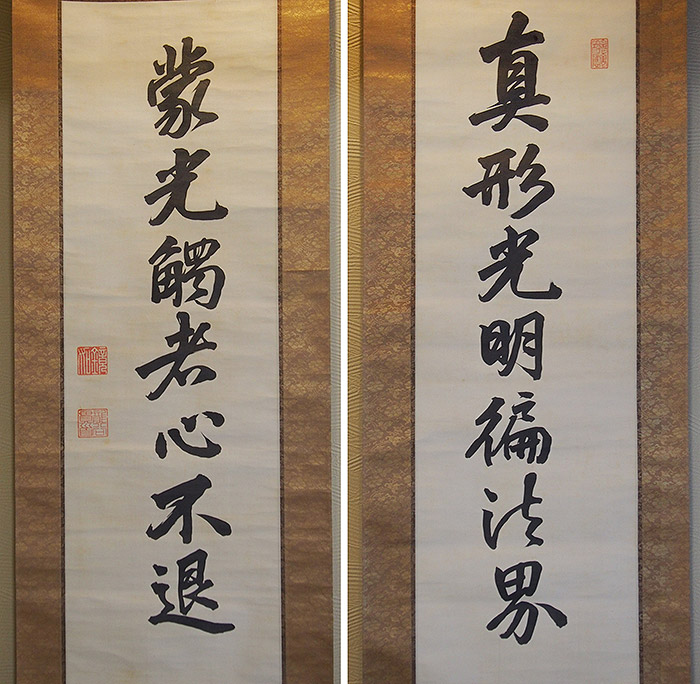 真形光明徧法界
蒙光觸者心不退